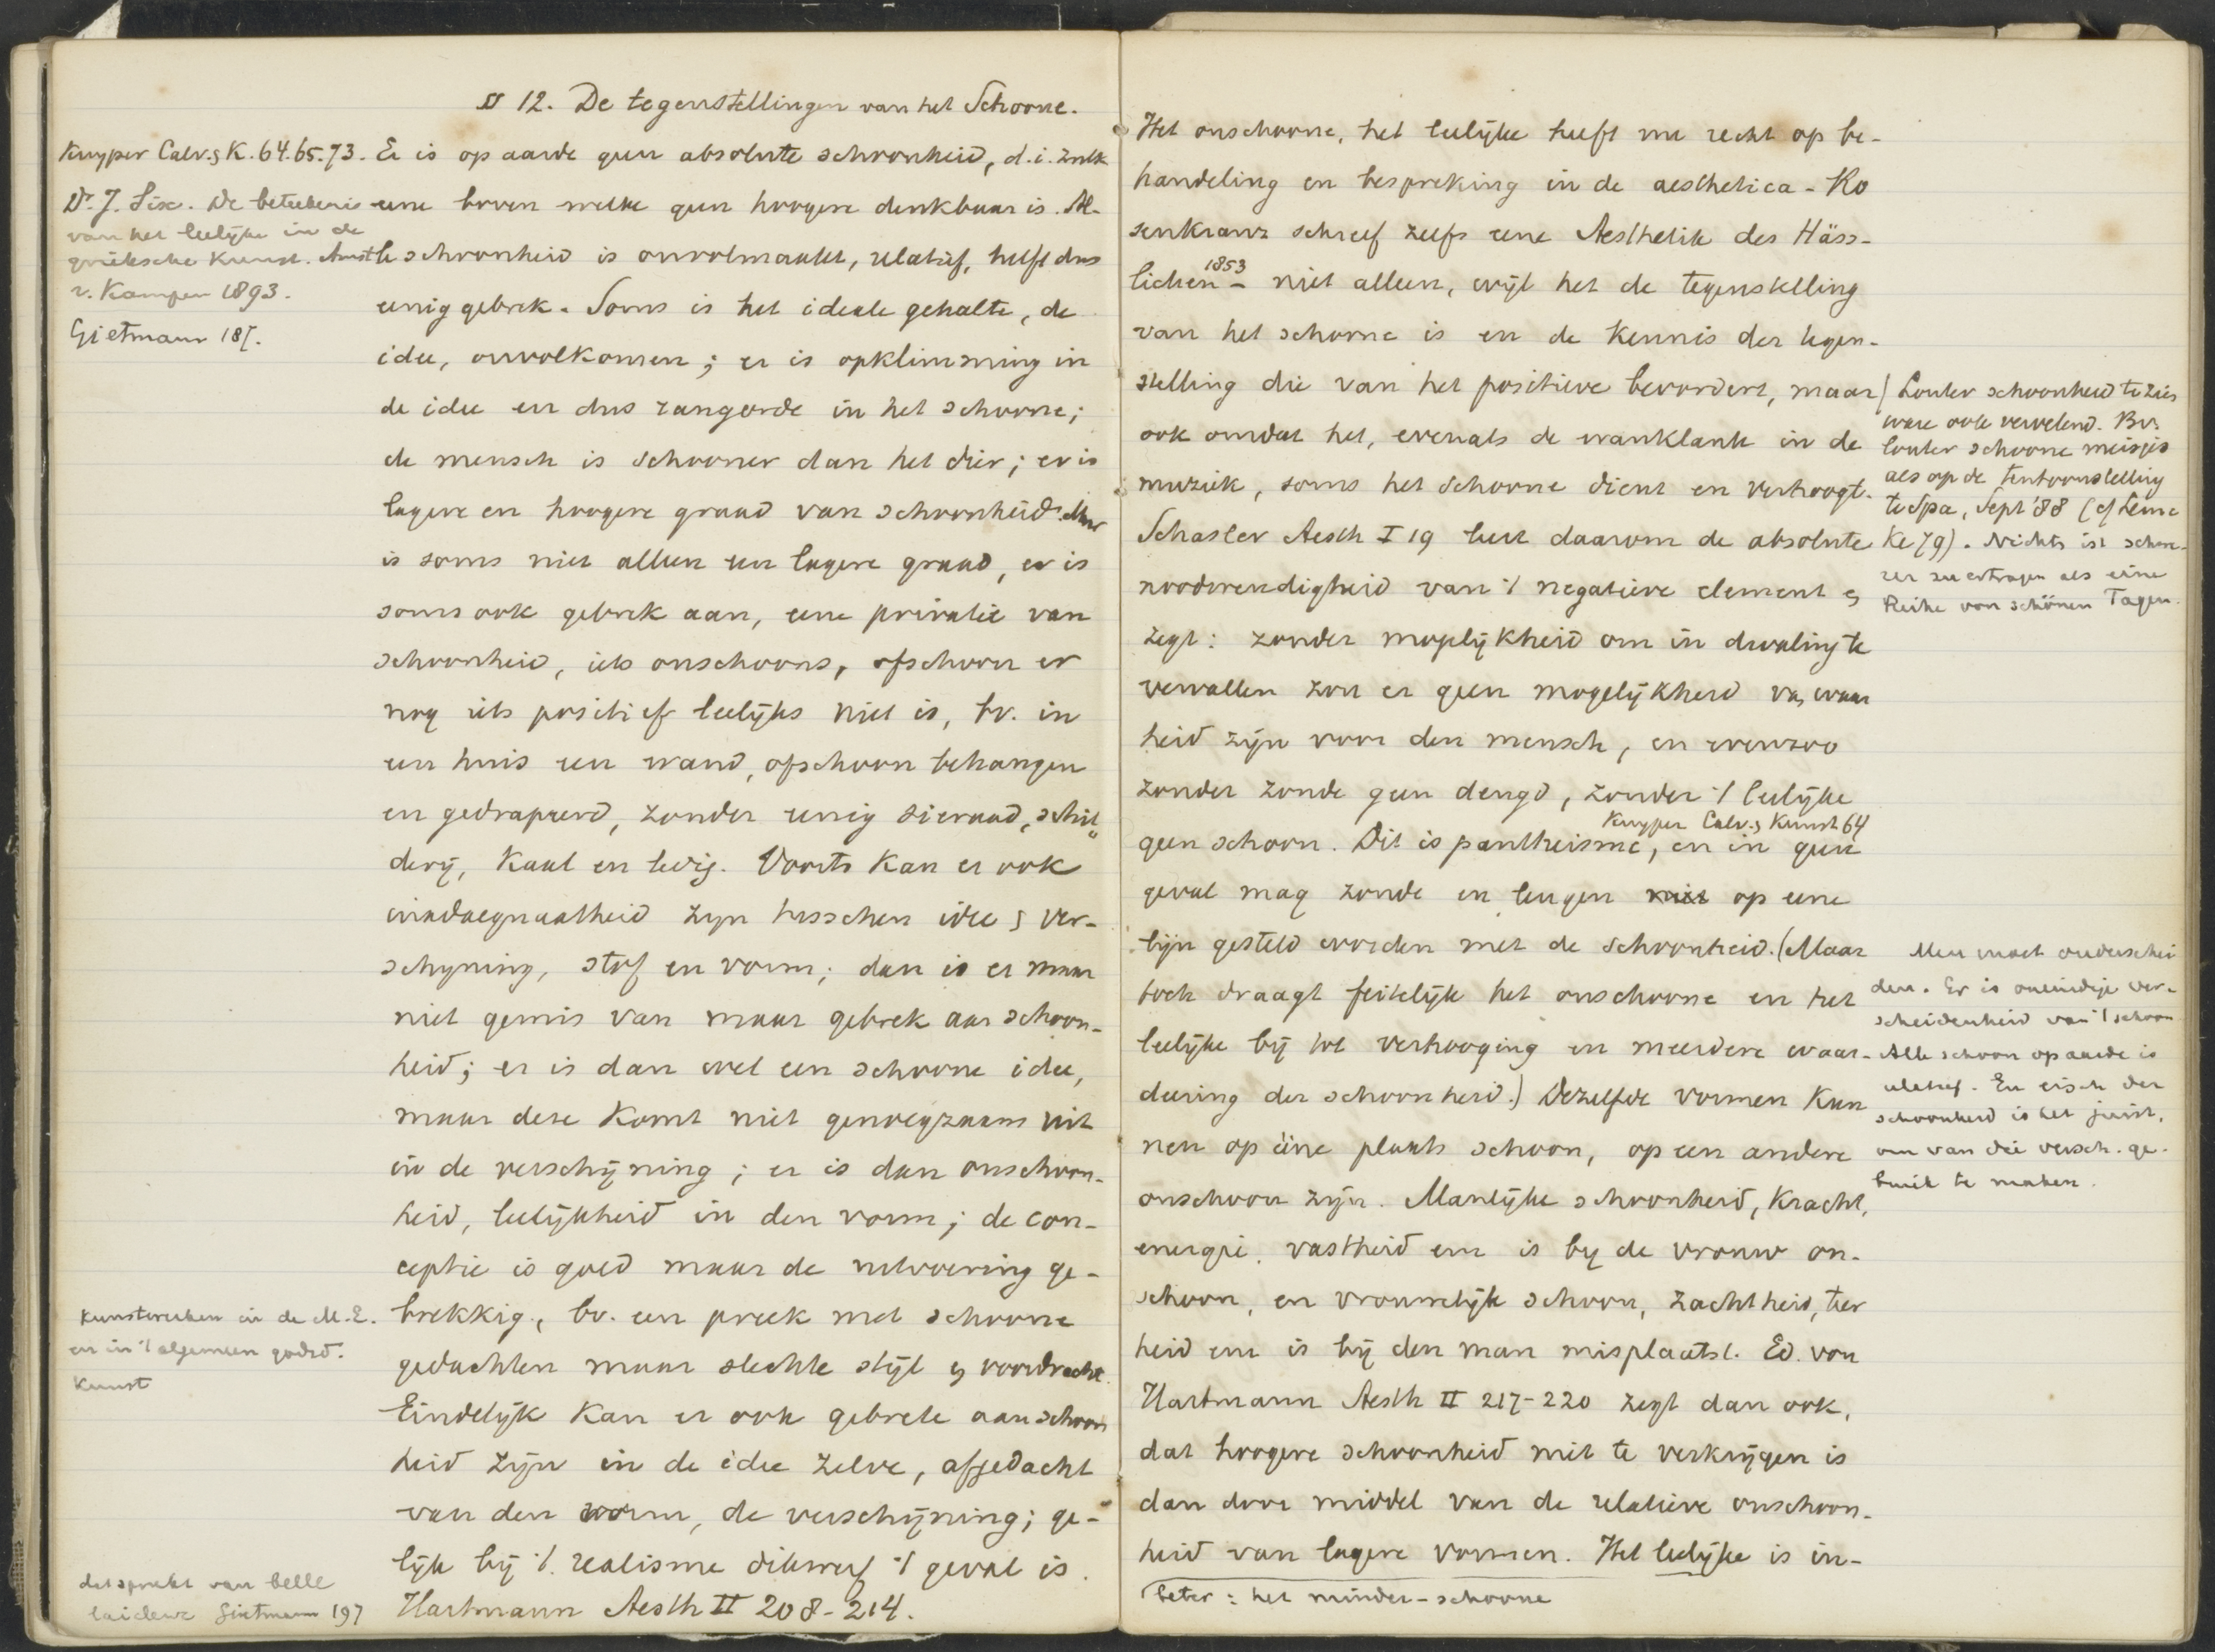 § 12. De tegenstellingen van het Schoone.
Kuyper Calv. & K. 64.65.73.
Dr. J. Six. De beteekenis
van het leelijke in de
grieksche Kunst. Amst
v. Kampen 1893.
Gietmann 187.
Er is op aarde geen absolute schoonheid, d.i. zulk
eene boven welke geen hoogere denkbaar is. Al-
le schoonheid is onvolmaakt, relatief, heeft dus
eenig gebrek. Soms is het ideale gehalte, de
idee, onvolkomen; er is opklimming in
de idee en dus rangorde in het schoone;
de mensch is schooner dan het dier; er is
lagere en hoogere graad van schoonheid. Maar
is soms niet alleen een lagere graad, er is
soms ook gebrek aan, eene privatie van
schoonheid, iets onschoons, ofschoon er
nog iets positief leelijks niet is, bv. in
een huis een wand, ofschoon behangen
en gedrapeerd, zonder eenig sieraad, schil=
derij, kaal en ledig. Voorts kan er ook
inadaequaatheid zijn tusschen idee & ver-
schijning, stof en vorm; dan is er maar
niet gemis van maar gebrek aan schoon-
heid; er is dan wel een schoone idee,
maar deze komt niet genoegzaam uit
in de verschijning; er is dan onschoon-
heid, leelijkheid in den vorm; de con-
ceptie is goed maar de uitvoering ge-
brekkig, bv. een preek met schoone
gedachten maar slechte stijl & voordracht.
Eindelijk kan er ook gebrek aan schoon
heid zijn in de idee zelve, afgedacht
van den vorm, de verschijning; ge-
lijk bij 't realisme dikwerf 't geval is.
Hartmann Aesth II 208-214.
Kunstwerken in de M.E.
en in 't algemeen godsd.
Kunst
dat spreekt van belle
laideur Gietmann 197
Het onschoone, het leelijke heeft nu recht op be-
handeling en bespreking in de aesthetica - Ro
senkranz schreef zelfs eene Aesthetik des Häss-
lichen 1853 - niet alleen, wijl het de tegenstelling
van het schoone is en de kennis der tegen-
stelling die van het positieve bevordert, maar
ook omdat het, evenals de wanklank in de
muziek, soms het schoone dient en verhoogt.
Schasler Aesth I 19 leert daarom de absolute
noodwendigheid van 't negatieve element &
zegt: zonder mogelijkheid om in dwaling te
vervallen zou er geen mogelijkheid van waar
heid zijn voor den mensch, en evenzoo
zonder zonde geen deugd, zonder 't leelijke
Kuyper Calv. & Kunst 64
geen schoon. Dit is pantheisme, en in geen
geval mag zonde en leugen op eene
lijn gesteld worden met de schoonheid. (Maar
toch draagt feitelijk het onschoone en het
leelijke bij tot verhooging en meerdere waar-
deering der schoonheid.) Dezelfde vormen kun
nen op ééne plaats schoon, op een andere
onschoon zijn. Manlijke schoonheid, kracht,
energie, vastheid enz is bij de vrouw on-
schoon, en vrouwelijk schoon, zachtheid, teer
heid enz is bij den man misplaatst. Ed. von
Hartmann Aesth II 217-220 zegt dan ook,
dat hoogere schoonheid niet te verkrijgen is
dan door middel van de relatieve onschoon-
heid van lagere vormen. Het leelijke is in-
beter: het minder-schoone
Louter schoonheid te zien
ware ook vervelend. Bv.
louter schoone meisjes
als op de tentoonstelling
te Spa, Sept '88 (cf Lemc
ke 79). Nichts ist schwe-
rer zu ertragen als eine
Reihe von schönen Tagen.
Men moet onderschei
den. Er is oneindige ver-
scheidenheid van 't schoon
Alle schoon op aarde is
relatief. En eisch der
schoonheid is het juist,
om van die versch. ge-
bruik te maken.